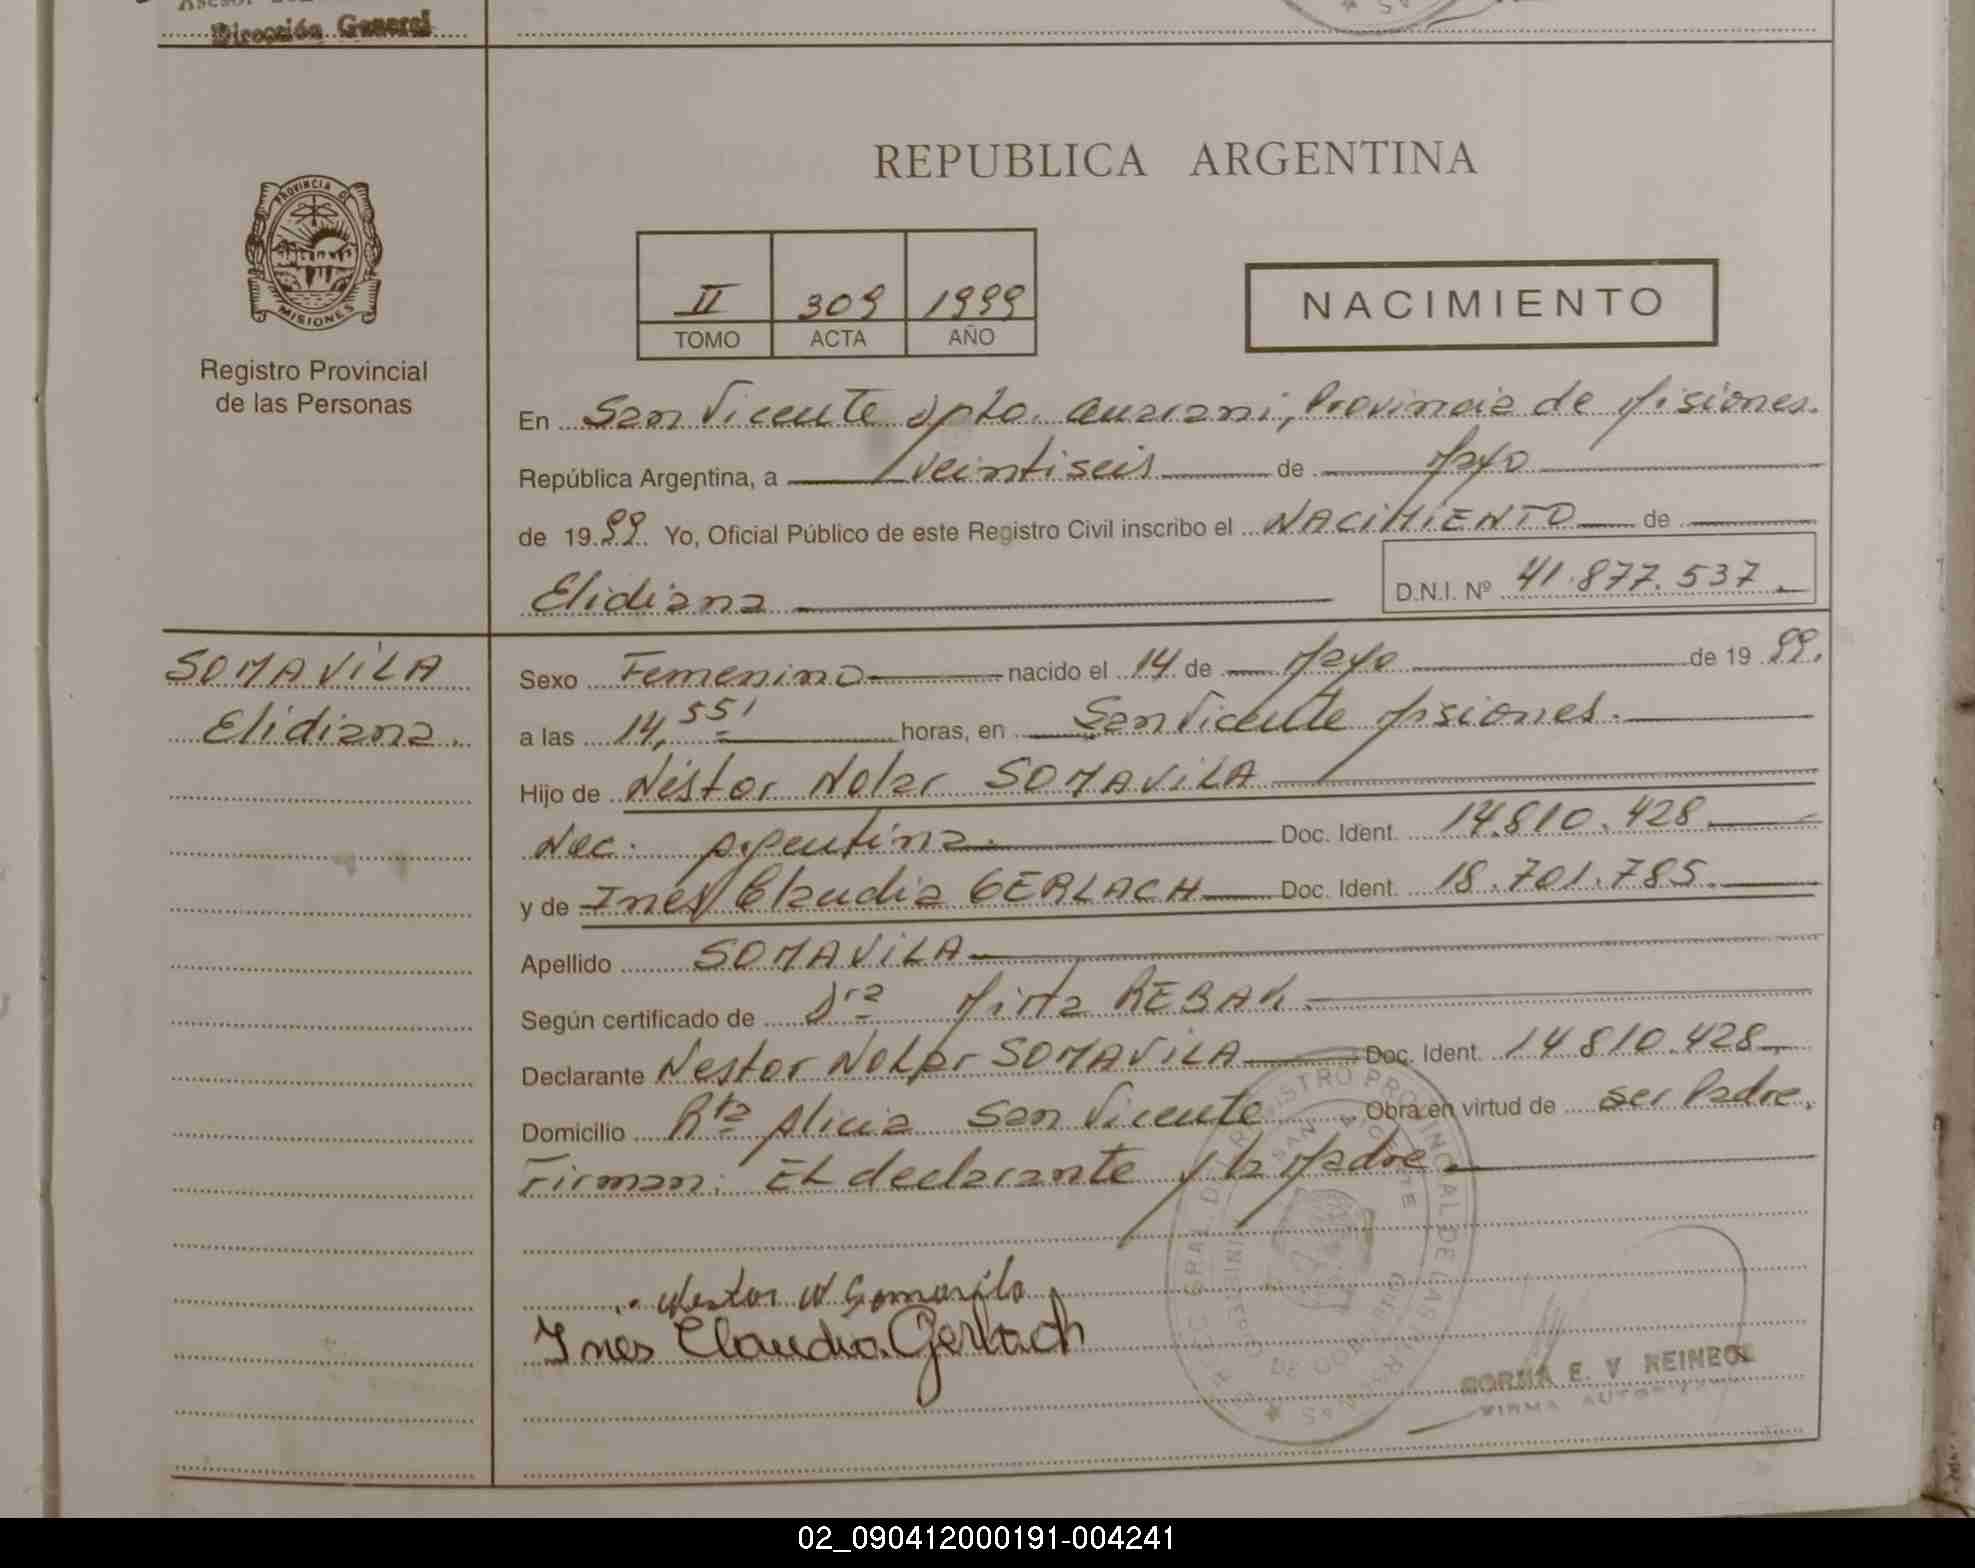 Dirección General
REPUBLICA ARGENTINA
PROVINCIA DE
MISIONES
Registro Provincial
de las Personas
II 309 1999
TOMO ACTA AÑO
NACIMIENTO
En San Vicente Dpto. Guarani, Provincia de Misiones.
República Argentina, a veintiseis de Mayo
de 1999. Yo, Oficial Público de este Registro Civil inscribo el NACIMIENTO de
Elidiana D.N.I. Nº 41.877.537.
SOMAVILA
Elidiana.
Sexo Femenino nacido el 14 de Mayo de 1999.
a las 14,55' horas, en San Vicente Misiones.
Hijo de Néstor Nolar SOMAVILA
Nac. Argentina. Doc. Ident. 14.810.428
y de Inés Claudia GERLACH Doc. Ident. 18.701.785.
Apellido SOMAVILA
Según certificado de Dra Mirta REBAK.
Declarante Nestor Nolar SOMAVILA Doc. Ident. 14810.428
Domicilio Rta Alicia San Vicente Obra en virtud de ser Padre.
Firman: El declarante y la Madre
Nestor N Somavila
Ines Claudia Gerlach
NORMA E. V. REINECK
FIRMA AUTORIZADA
02_090412000191-004241